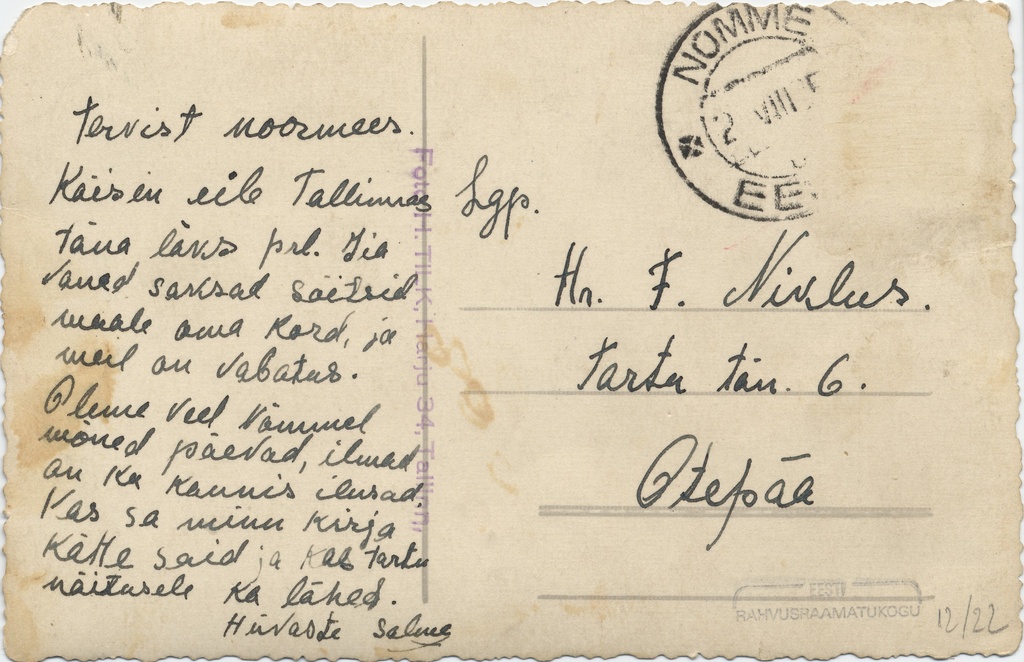 Tervist noormees.
Käisin eile Tallinnas
täna läks prl.
Vaned saksad sõitsid
maale oma kord, ja
meil on vabatus.
Oleme veel Nõmmel
mõned päevad, ilmad
on ka kaunis ilusad
Kas sa minu kirja
kätte said ja kas Tartu
näitusele ka lähed.
Hüvaste Salme
Foto H. TILK, Harju 34, Tallinn
NÕMME
2 VIII
EE
Lgp.
Hr. F. Niklus.
Tartu tän. 6.
Otepää
EESTI
RAHVUSRAAMATUKOGU
12/22